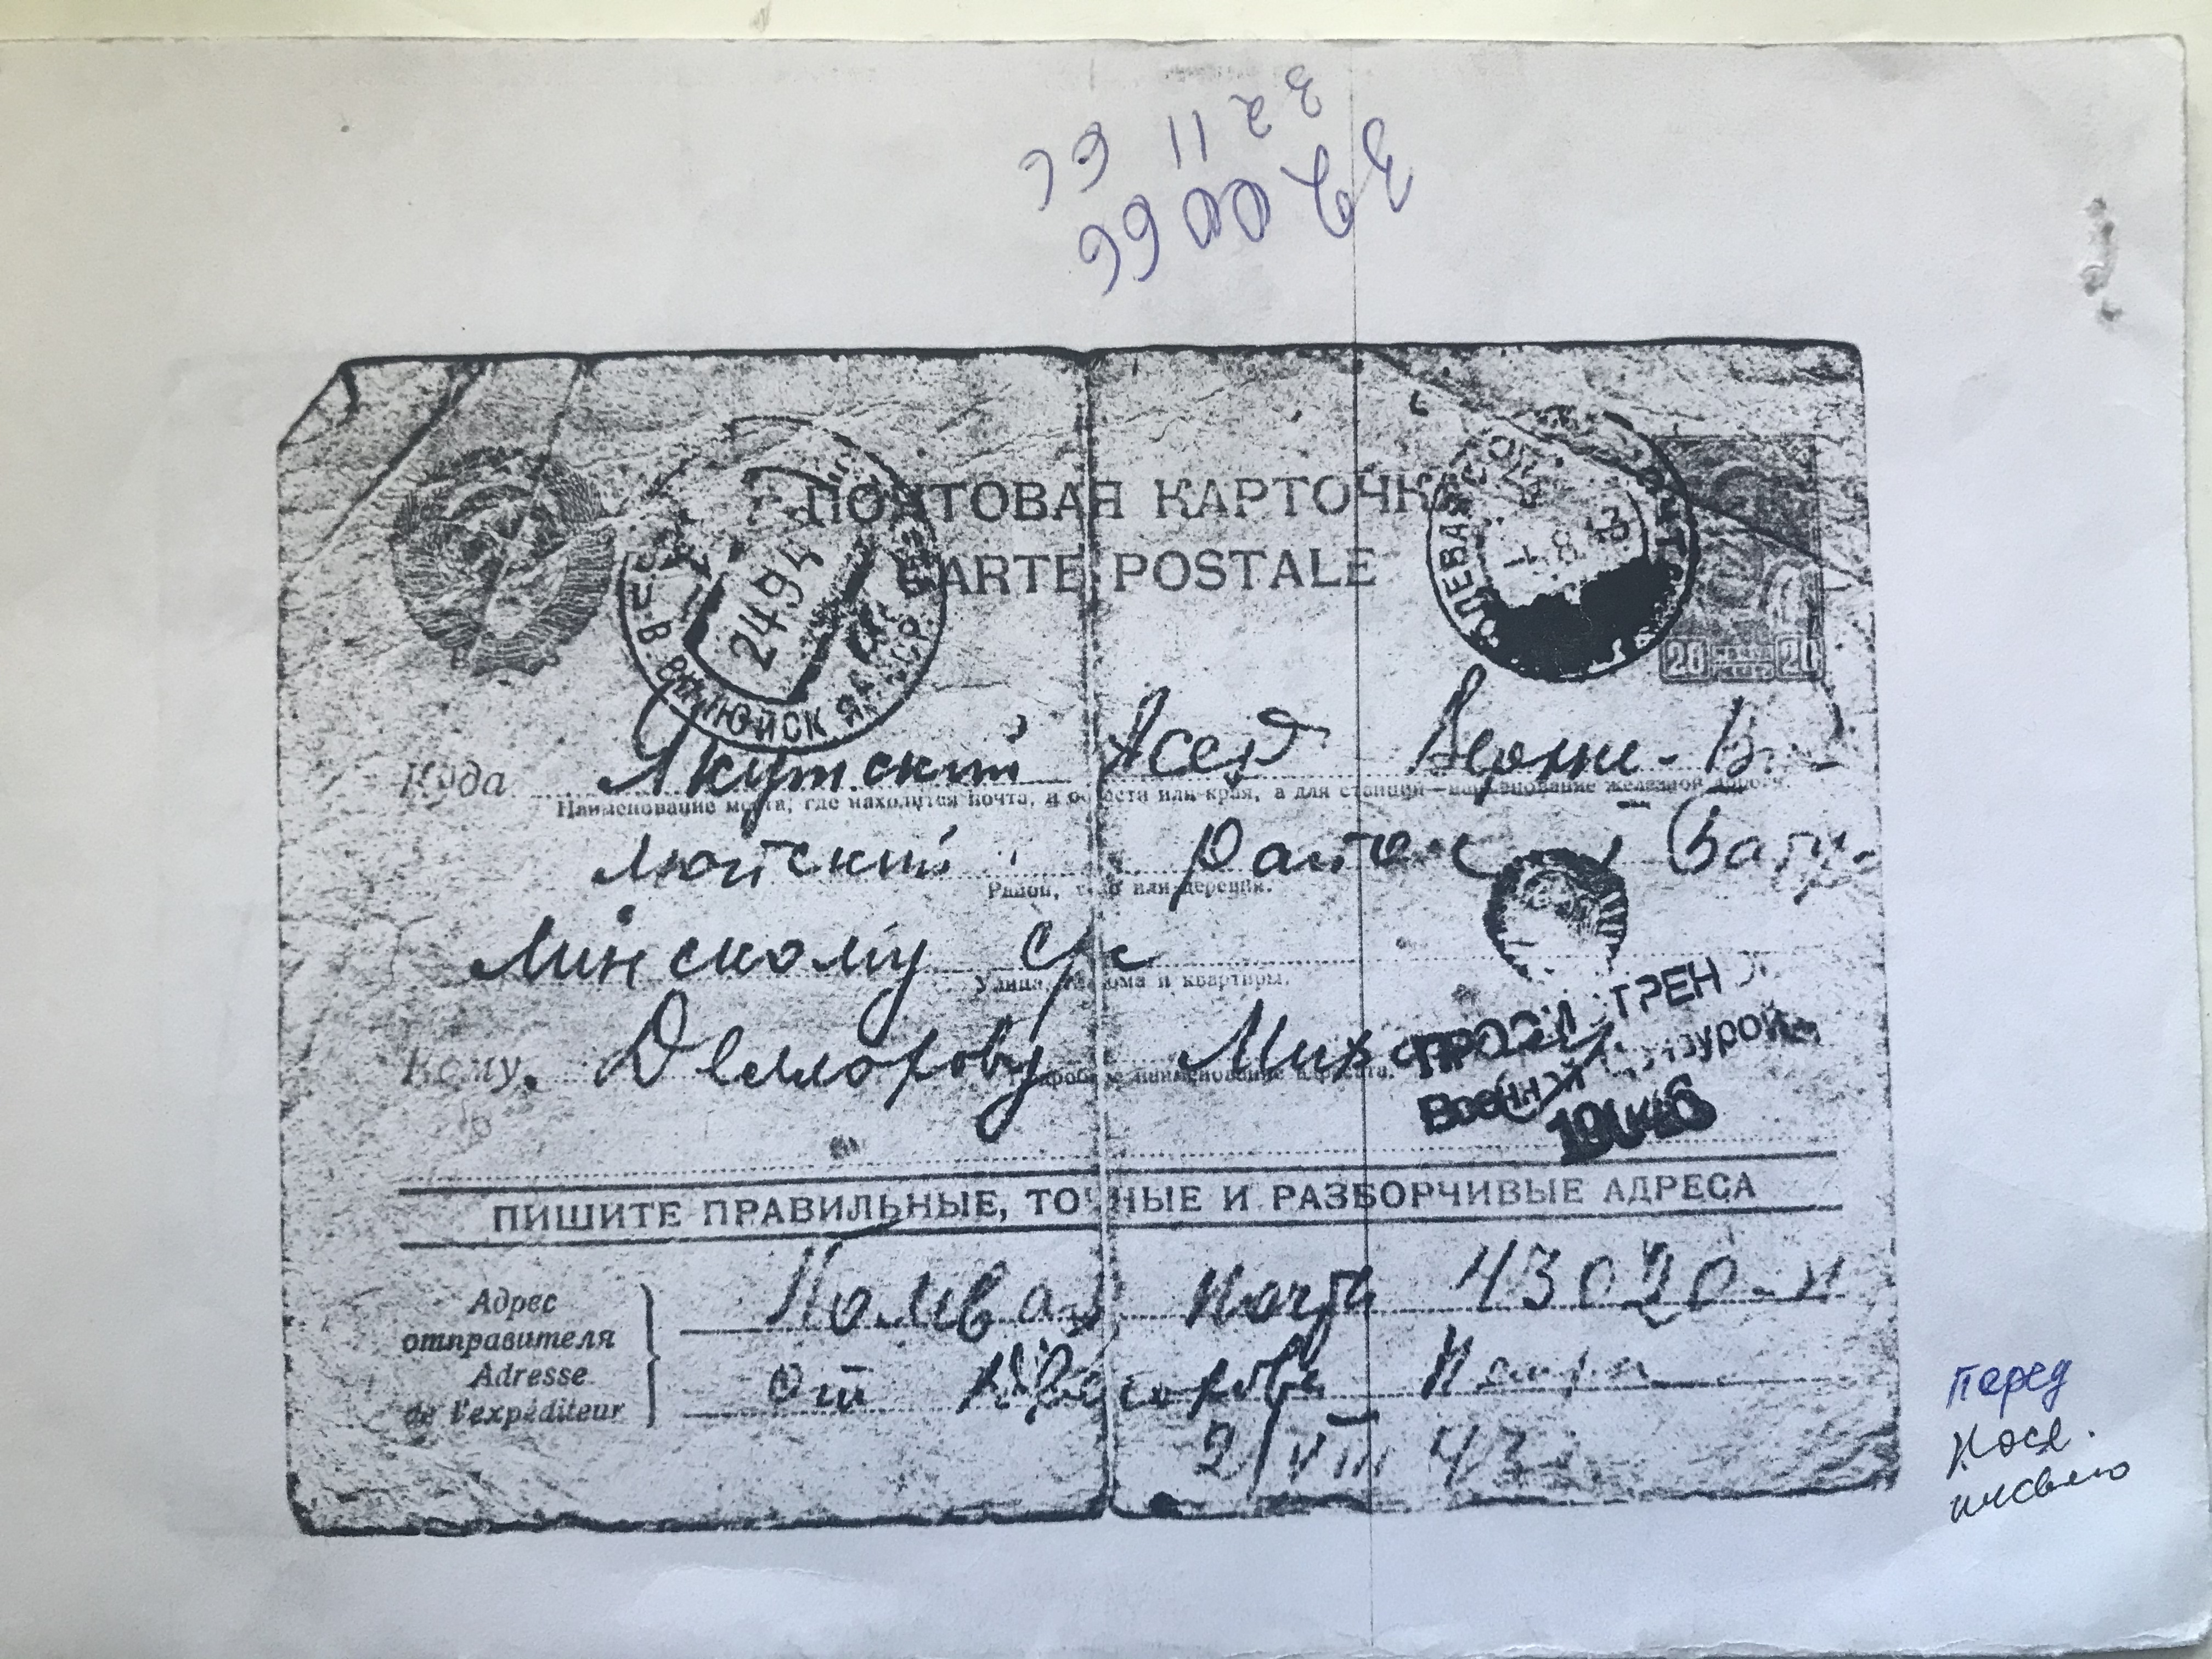 32 11 66
320066
ПОЧТОВАЯ КАРТОЧКА
CARTE POSTALE
ПОЛЕВАЯ
8.43
2494
В. ВИЛЮЙСК ЯК. АССР.
20 20
Куда Якутский Асср Верхне-Ви-
Наименование места, где находится почта, и области или края, а для станции—наименование железной дороги.
люйский район
Район, село или деревня.
Минскому с/с
Улица, № дома и квартиры.
Кому. Федорову Мих
Подробное наименование адресата.
ПРОСМОТРЕНО
Военной Цензурой
ПИШИТЕ ПРАВИЛЬНЫЕ, ТОЧНЫЕ И РАЗБОРЧИВЫЕ АДРЕСА
Адрес
отправителя
Adresse
de l'expéditeur
Полевая почта 43020-и
от
2/VIII 43
перед
посл.
письмо